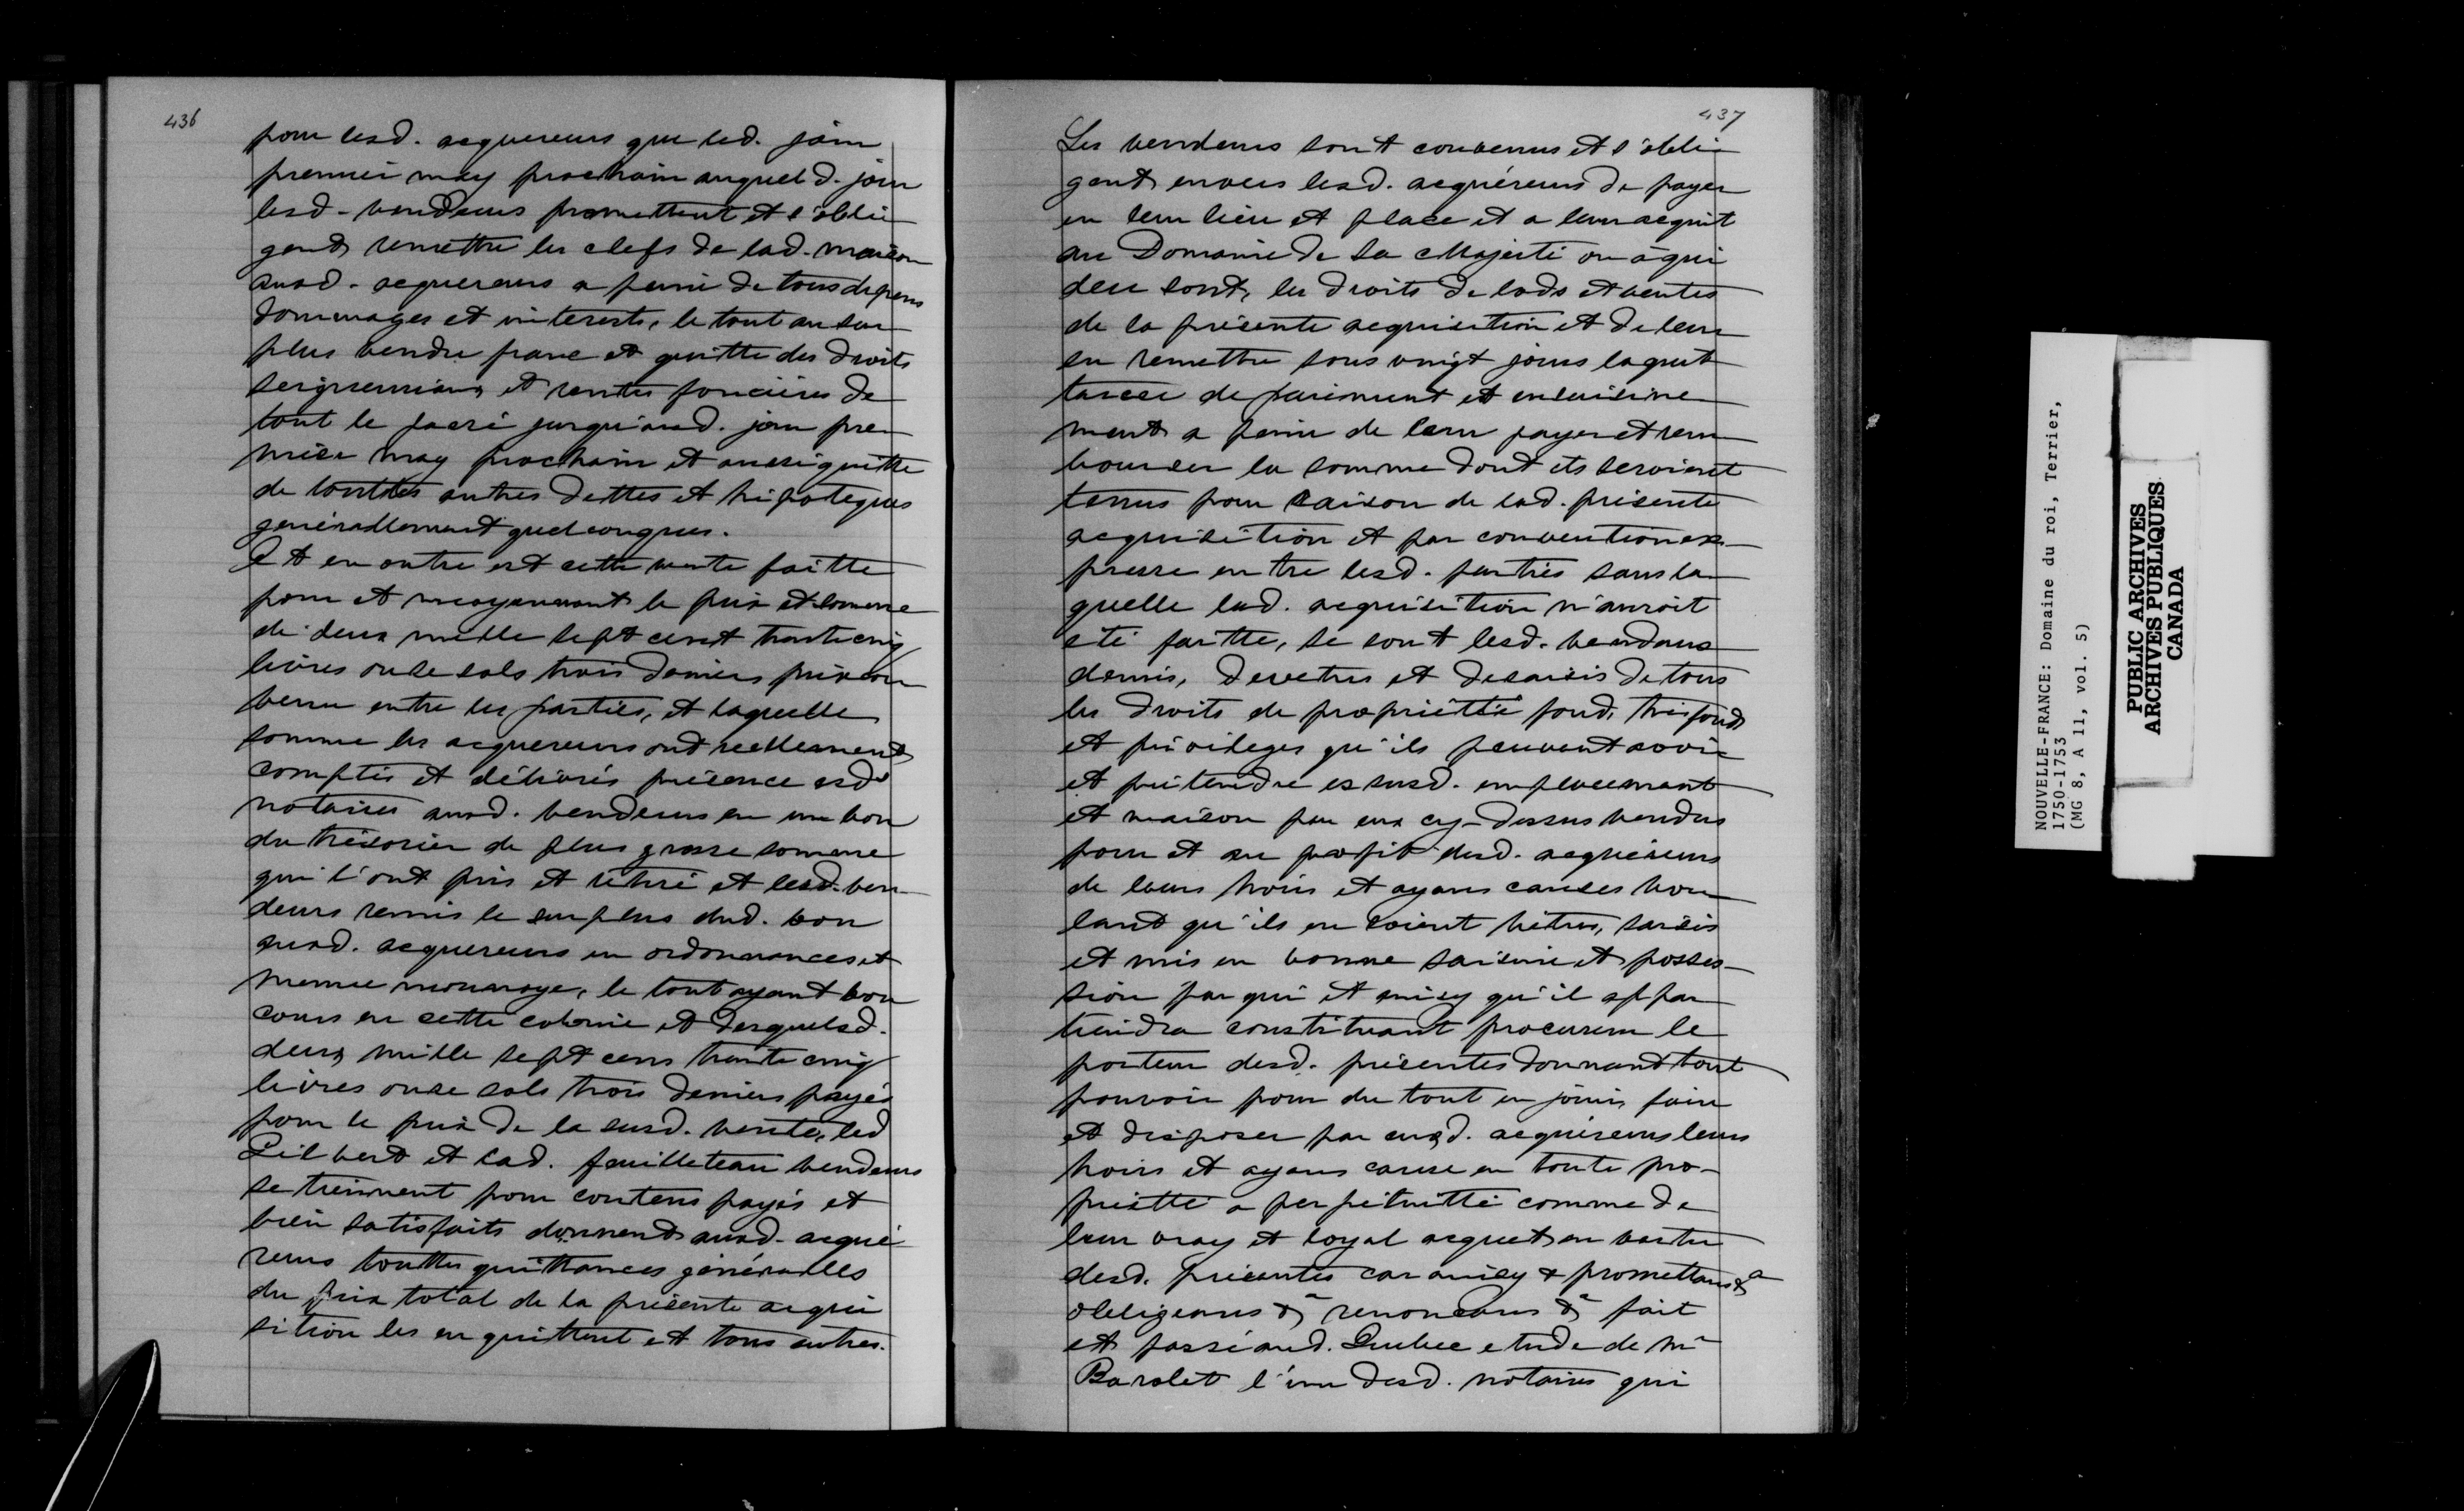 436
pour lesd. acquereurs que led. jour
premier may prochain auquel d. jour
lesd. vendeurs promettent et s'obli
gent remettre les clefs de lad. maison
auxd. acquereurs a peine de tous depens
dommages et interests, le tout au sur
plus vendu franc et quitte des droits
seigneuriaux et rentes foncières de
tout le passé jusqu'aud. jour pre
mier may prochain et aussi quitte
de touttes autres dettes et hipoteques
generallement quelconques.
Et en outre est cette vente faitte
pour et moyennant le prix et somme
de deux mille sept cent trente cinq
livres onze sols trois deniers prix con
venu entre les parties, et laquelle
somme les acquereurs ont reellement
comptés et délivrés présence esd
notaires auxd. vendeurs en un bon
du trésorier de plus grosse somme
qui l'ont pris et retiré et lesd. ven
deurs remis le surplus dud. bon
auxd. acquereurs en ordonnances et
menue monnoye, le tout ayant bon
cours en cette colonie et desquelsd.
deux mille sept cens trente cinq
livres onze sols trois deniers payés
pour le prix de la susd. vente, led
Gilbert et lad. feuilleteau vendeurs
se tiennent pour contens payés et
bien satisfaits donnent auxd. acqué
reurs touttes quittances généralles
du prix total de la présente acqui
sition les en quittent et tous autres.
437
Les vendeurs sont convenus et s'obli
gent envers lesd. acquéreurs de payer
en leur lieu et place et a leur acquit
au Domaine de Sa Majesté ou à qui
deu sont, les droits de lods et ventes
de la présente acquisition et de leur
en remettre sous vingt jours la quit
tance de paiement et ensaisine
ment a peine de leur payer et rem
bourser la somme dont ils seroient
tenus pour raison de lad. présente
acquisition et par convention ex
presse entre lesd. parties sans la
quelle lad. acquisition n'auroit
eté faitte, se sont lesd. vendeurs
demis, devetus et desaisis de tous
les droits de propriétté fond, tresfond
et privileges qu'ils peuvent avoir
et pretendre es susd. emplacement
et maison par eux cy-dessus vendus
pour et au profit desd. acquéreurs
de leurs hoirs et ayans causes vou
lant qu'ils en soient vetus, saisis
et mis en bonne saisine et posses-
sion par qui et ainsy qu'il appar
tiendra constituant procureur le
porteur desd. présentes donnant tout
pouvoir pour du tout en jouir, faire
et disposer par auxd. acquéreurs leurs
hoirs et ayans cause en toute pro-
priétté a perpétuitté comme de
leur vray et loyal acquet en vertu
desd. présentes car ainsy & promettans &a
obligeans &a renoncans &a fait
et passé aud. Quebec etude de Me
Barolet l'un desd. notaires qui
NOUVELLE-FRANCE: Domaine du roi, Terrier,
1750-1753
(MG 8, A 11, vol. 5)
PUBLIC ARCHIVES
ARCHIVES PUBLIQUES
CANADA